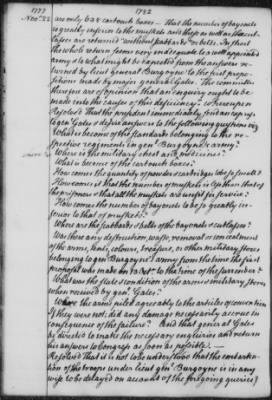 1777
1782
Nov. 22
are only 648 cartouch boxes – that the number of bayonets
is greatly inferior to the muskets and these as well as the cut-
lasses are returned "without scabbards" or belts. In short
the whole return seems very inadequate to a well appointed
army & to what might be expected from the answers re-
turned by lieut general Burgoyne to the first propo-
sitions made by major general Gates. The committee
therefore are of opinion that an enquiry ought to be
made into the causes of this deficiency. Whereupon
Resolved That the president immediately send and request
Gen Gates' explicit answers to the following questions viz
What is become of the standards belonging to the re-
spective regiments in gen! Burgoyne's army?
Where is the military chest and medicines?
What is become of the cartouch boxes?
How comes the quantity of powder & cartridges to be so small?
How comes it that the number of muskets is less than that of
the prisoners & that all the muskets are unfit for service?
How comes the number of bayonets to be so greatly in-
ferior to that of muskets?
Where are the scabbards & belts of the bayonets & cutlasses?
Was there any destruction, waste, removal or concealment
of the arms, tents, colours, treasure, or other military stores
belonging to gen. Burgoyne's army from the time the first
proposal was made on 13 Octr to the time of the surrender?
What was the state & condition of the arms & military stores
when received by gen. Gates?
Were the arms piled agreeably to the articles of convention
If they were not: did any damage necessarily accrue in
consequence of the failure? And that general Gates
be directed to make the necessary enquiries and return
his answers to Congress as soon as possible. –
Resolved That it is not to be understood that the embarka-
tion of the troops under lieut gen! Burgoyne is in any
wise to be delayed on account of the foregoing queries